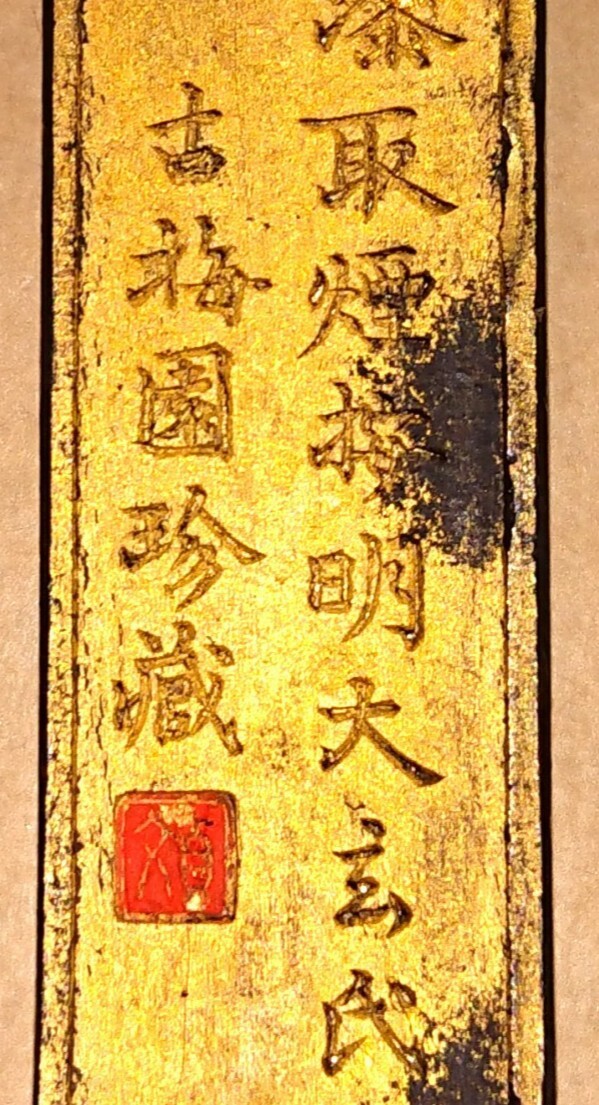 取煙扵明大玄
古梅園珍藏